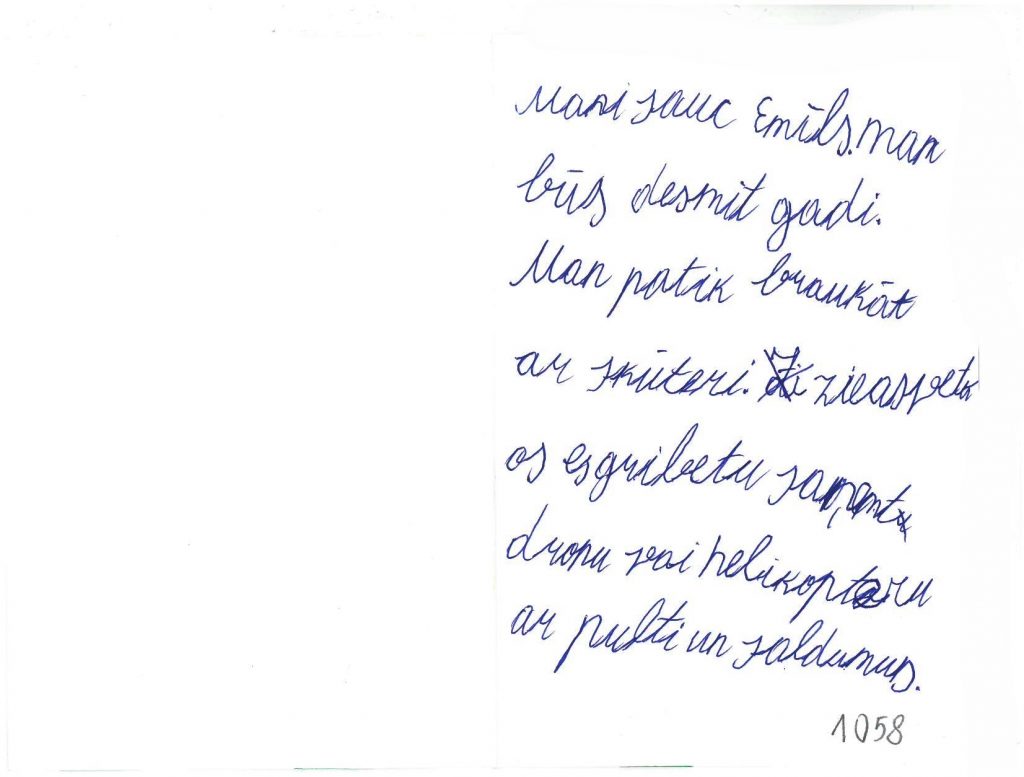 Mani sauc Emīls. Man
būs desmit gadi.
Man patik braukāt
ar skūteri. zieasvetk
os es gribetu saņemt
dronu vai helikopteru
ar pulti un saldumus.
1058